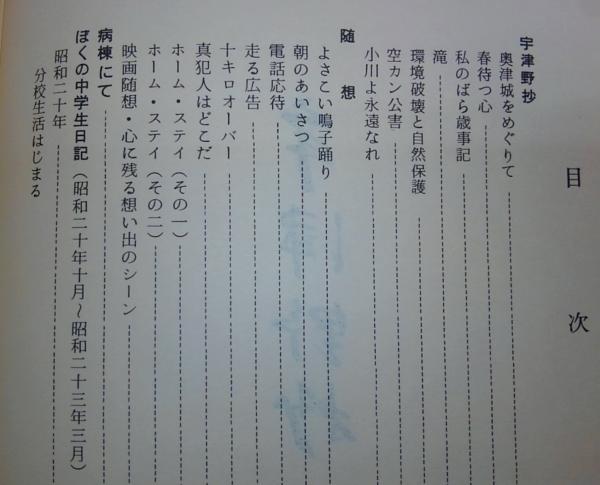 目次
宇津野抄
奥津城をめぐりて
春待つ心
私のばら歳事記
滝
環境破壊と自然保護
空カン公害
小川よ永遠なれ
随想
よさこい鳴子踊り
朝のあいさつ
電話応待
走る広告
十キロオーバー
真犯人はどこだ
ホーム・ステイ(その一)
ホーム・ステイ(その二)
映画随想・心に残る想い出のシーン
病棟にて
ぼくの中学生日記(昭和二十年十月~昭和二十三年三月)
昭和二十年
分校生活はじまる